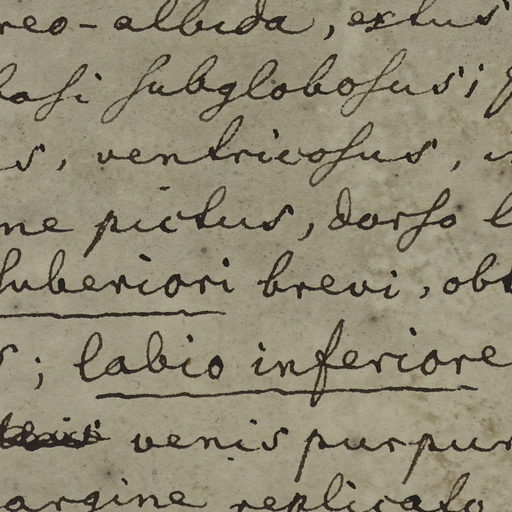 reo-albida, extus
basi subglobosus;
s, ventricosus,
ne pictus, dorso
suberiori brevi, obt
s; labio inferiore
venis purpur
argine replicato